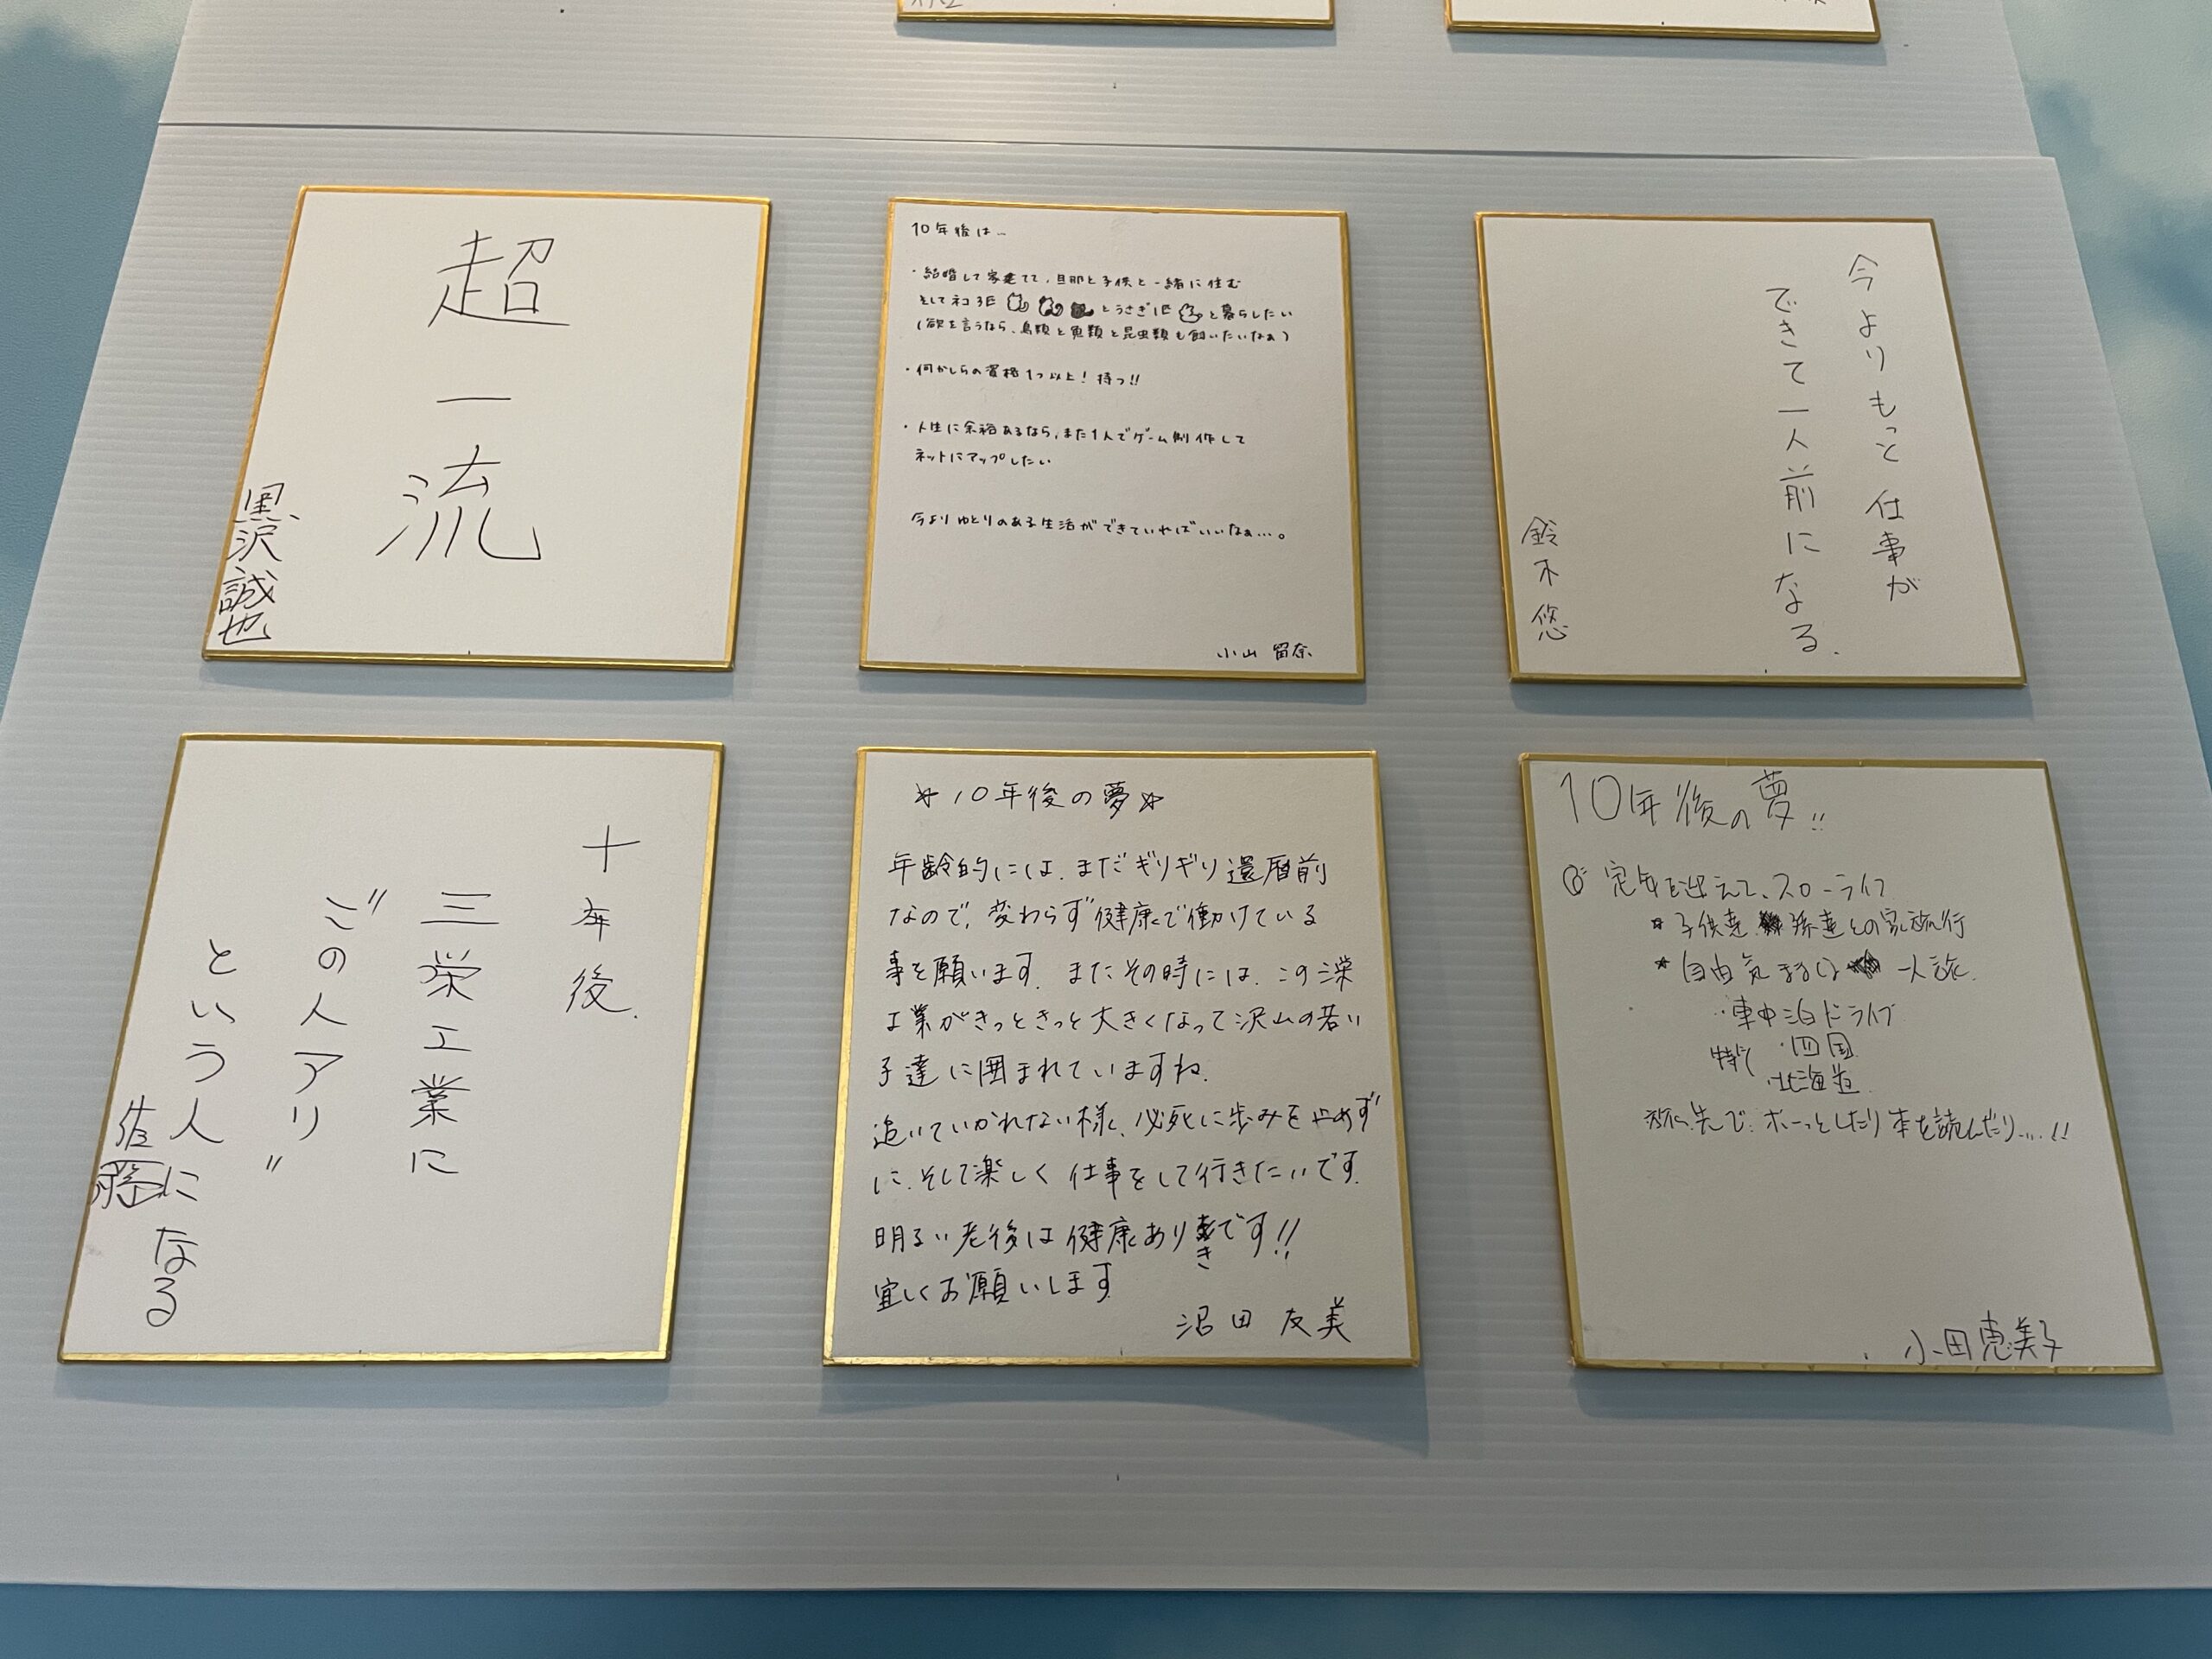 超一流
黒沢誠也
10年後は…
・結婚して家建てて、旦那と子供と一緒に住む
そしてネコ3匹とうさぎ1匹と暮らしたい
(欲を言うなら、鳥類と魚類と昆虫類も飼いたいなぁ)
・何かしらの資格1つ以上!持つ!!
・人生に余裕あるなら、また1人でゲーム制作して
ネットにアップしたい
今よりゆとりのある生活ができていればいいなぁ…。
小山 留奈
今よりもっと仕事が
できて一人前になる.
鈴木悠
十年後.
三栄工業に
"この人アリ"
という人になる
佐藤
☆10年後の夢☆
年齢的には、まだギリギリ還暦前
なので、変わらず健康で働けている
事を願います. またその時には、この栄
工業がきっときっと大きくなって沢山の若い
子達に囲まれていますね.
追いていかれない様に、必死に歩みを止めず
に、そして楽しく仕事をして行きたいです.
明るい老後は健康ありきです!!
宜しくお願いします
沼田 友美
10年後の夢!!
定年を迎えて、スローライフ
☆子供達 孫達との家族旅行
☆自由気ままに 一人旅.
・車中泊ドライブ
特に ・四国
・北海道
旅先で ボーっとしたり本を読んだり…!!
小田恵美子